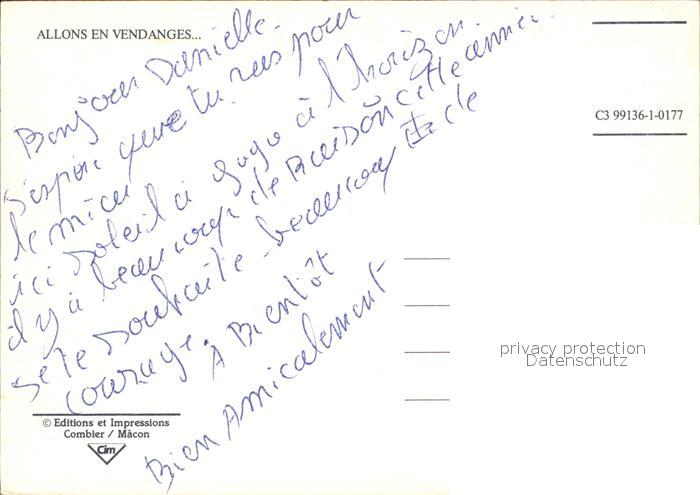 ALLONS EN VENDANGES...
C3 99136-1-0177
Bonjour Danielle.
J'espoir que tu vas pour
le mieu
ici soleil a gogo à l'horizon.
il y a beaucoup de Raison cette année.
Je te souhaite beaucoup de
courage. A Bientôt
Bien Amicalement
© Editions et Impressions
Combier / Mâcon
Cim
privacy protection
Datenschutz